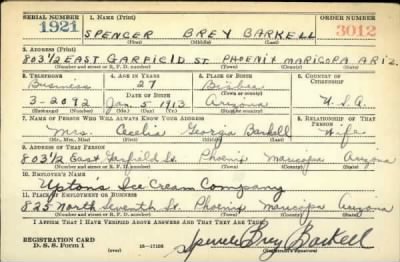 SERIAL NUMBER 1. NAME (Print) ORDER NUMBER
1921 SPENCER BREY BARKELL 3012
(First) (Middle) (Last)
2. ADDRESS (Print)
803 1/2 EAST GARFIELD ST. PHOENIX MARICOPA ARIZ.
(Number and street or R. F. D. number) (Town) (County) (State)
3. TELEPHONE 4. AGE IN YEARS 5. PLACE OF BIRTH 6. COUNTRY OF CITIZENSHIP
Business 27 Bisbee
DATE OF BIRTH (Town or county)
3-2092 Jan. 5 1913 Arizona U.S.A.
(Exchange) (Number) (Mo.) (Day) (Yr.) (State or country)
7. NAME OF PERSON WHO WILL ALWAYS KNOW YOUR ADDRESS 8. RELATIONSHIP OF THAT PERSON
Mrs. Cecelia Georgia Barkell Wife
(Mr., Mrs., Miss) (First) (Middle) (Last)
9. ADDRESS OF THAT PERSON
803 1/2 East Garfield St. Phoenix Maricopa Arizona
(Number and street or R. F. D. number) (Town) (County) (State)
10. EMPLOYER'S NAME
Upton's Ice Cream Company
11. PLACE OF EMPLOYMENT OR BUSINESS
825 North Seventh St. Phoenix Maricopa Arizona
(Number and street or R. F. D. number) (Town) (County) (State)
I AFFIRM THAT I HAVE VERIFIED ABOVE ANSWERS AND THAT THEY ARE TRUE.
REGISTRATION CARD
D. S. S. Form 1 (over) 16—17105 Spencer Brey Barkell
(Registrant's signature)